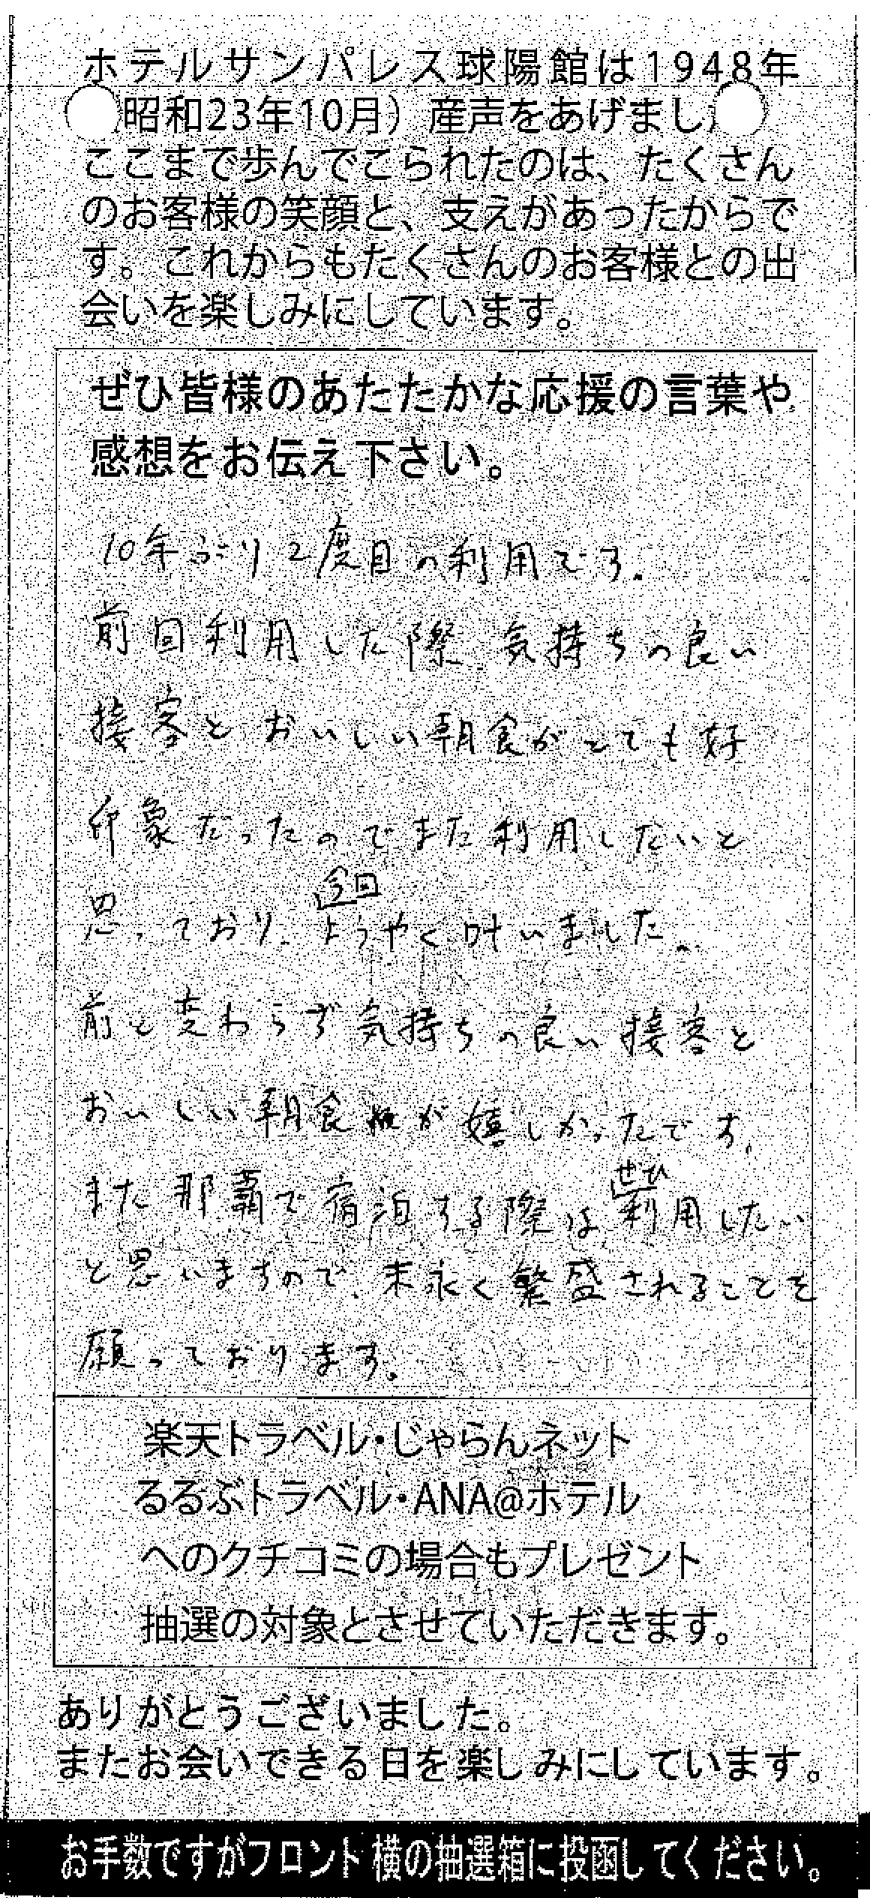 ホテルサンパレス球陽館は1948年
昭和23年10月）産声をあげまし
ここまで歩んでこられたのは、たくさん
のお客様の笑顔と、支えがあったからで
す。これからもたくさんのお客様との出
会いを楽しみにしています。
ぜひ皆様のあたたかな応援の言葉や
感想をお伝え下さい。
10年ぶり2度目の利用です。
前回利用した際、気持ちの良い
接客とおいしい朝食がとても好
印象だったのでまた利用したいと
今回
思っており、ようやく叶いました。
前と変わらず気持ちの良い接客と
おいしい朝食が嬉しかったです。
ぜひ
また那覇で宿泊する際は利用したい
と思いますので、末永く繁盛されることを
願っております。
楽天トラベル・じゃらんネット
るるぶトラベル・ANA@ホテル
へのクチコミの場合もプレゼント
抽選の対象とさせていただきます。
ありがとうございました。
またお会いできる日を楽しみにしています。
お手数ですがフロント横の抽選箱に投函してください。